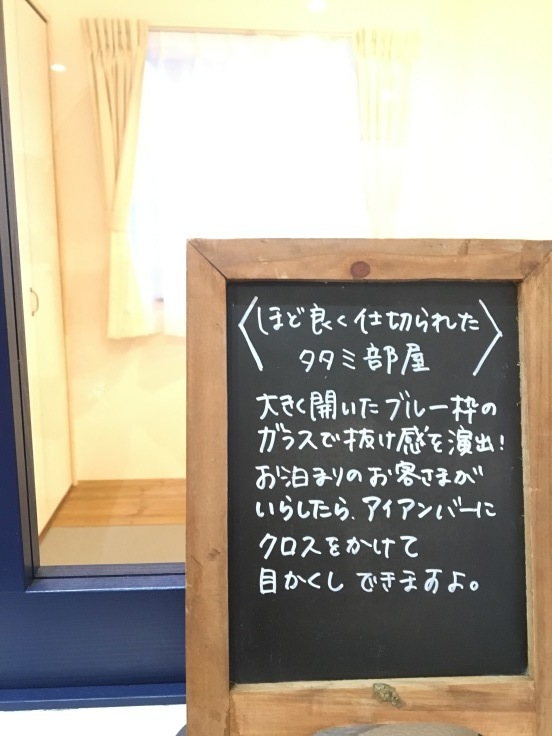 〈ほど良く仕切られた
タタミ部屋〉
大きく開いたブルー枠の
ガラスで抜け感を演出!
お泊まりのお客さまが
いらしたら、アイアンバーに
クロスをかけて
目かくしできますよ。